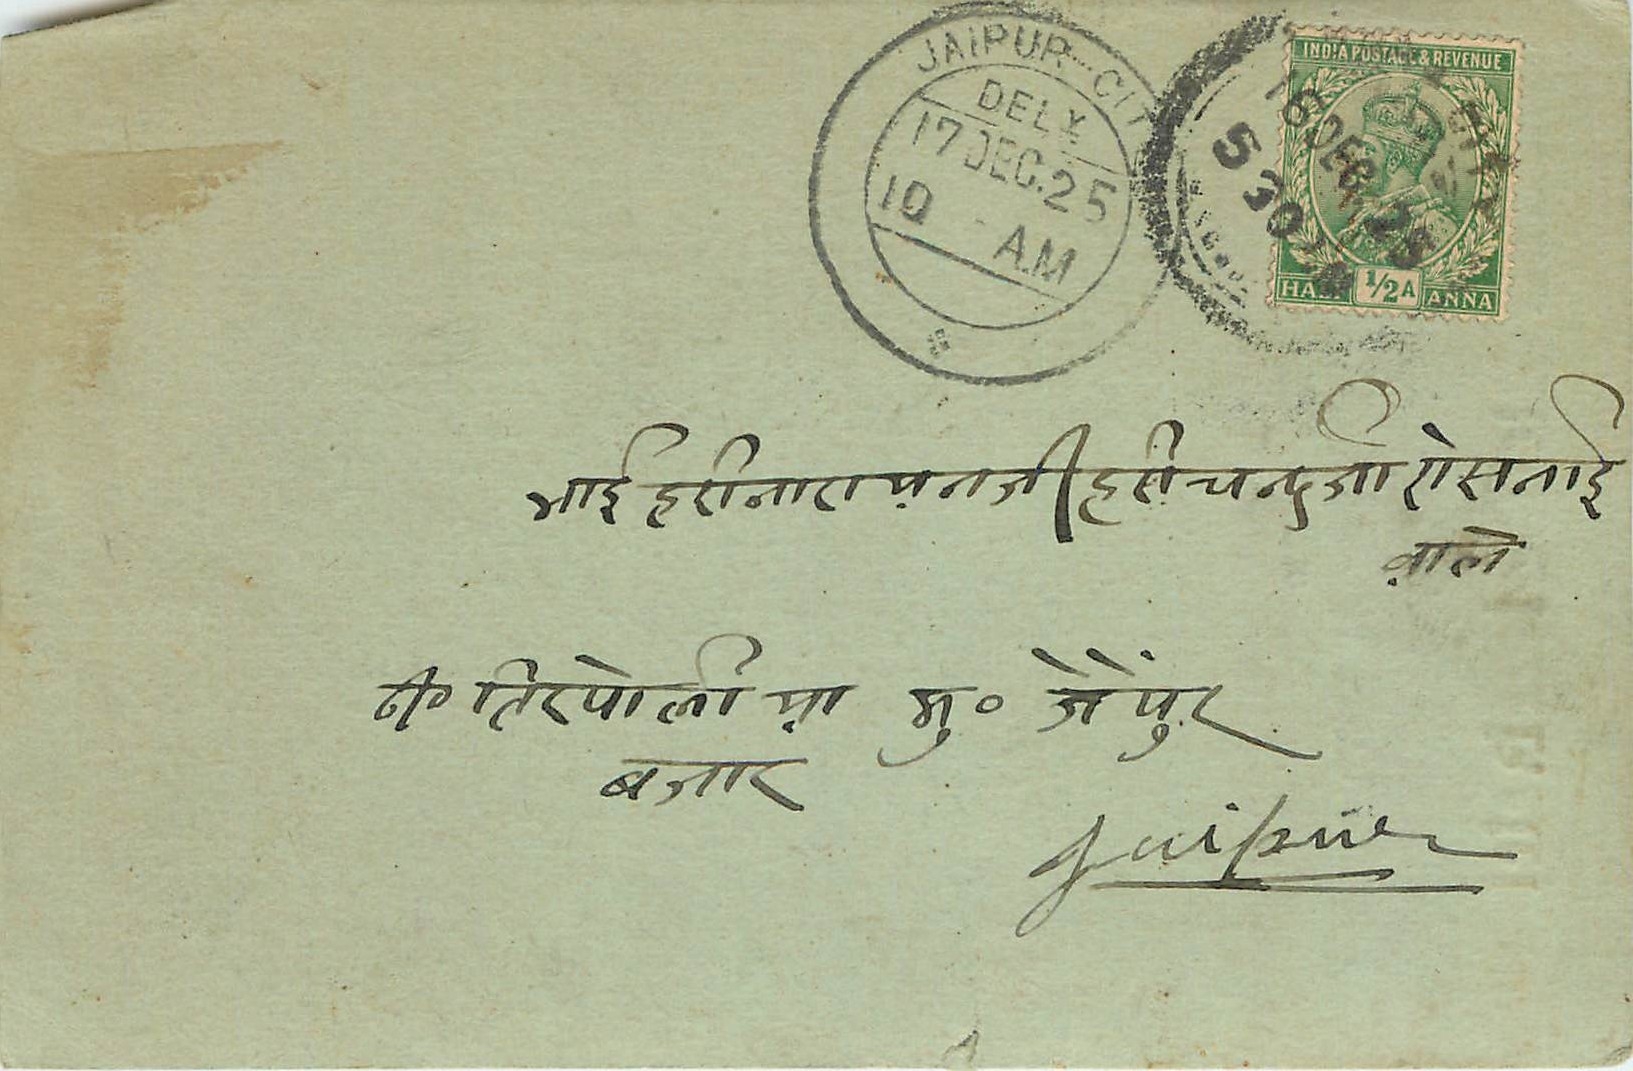 JAIPUR CITY
DELY.
17 DEC. 25
10 - A.M
INDIA POSTAGE & REVENUE
DEC 25
5 30
HALF 1/2 A ANNA
भाई हरीनारायनजी हरीचन्द्रजी रोसनाई
वाले
ठी० तिरपोलीया मु० जैपुर
बजार
Jaipur